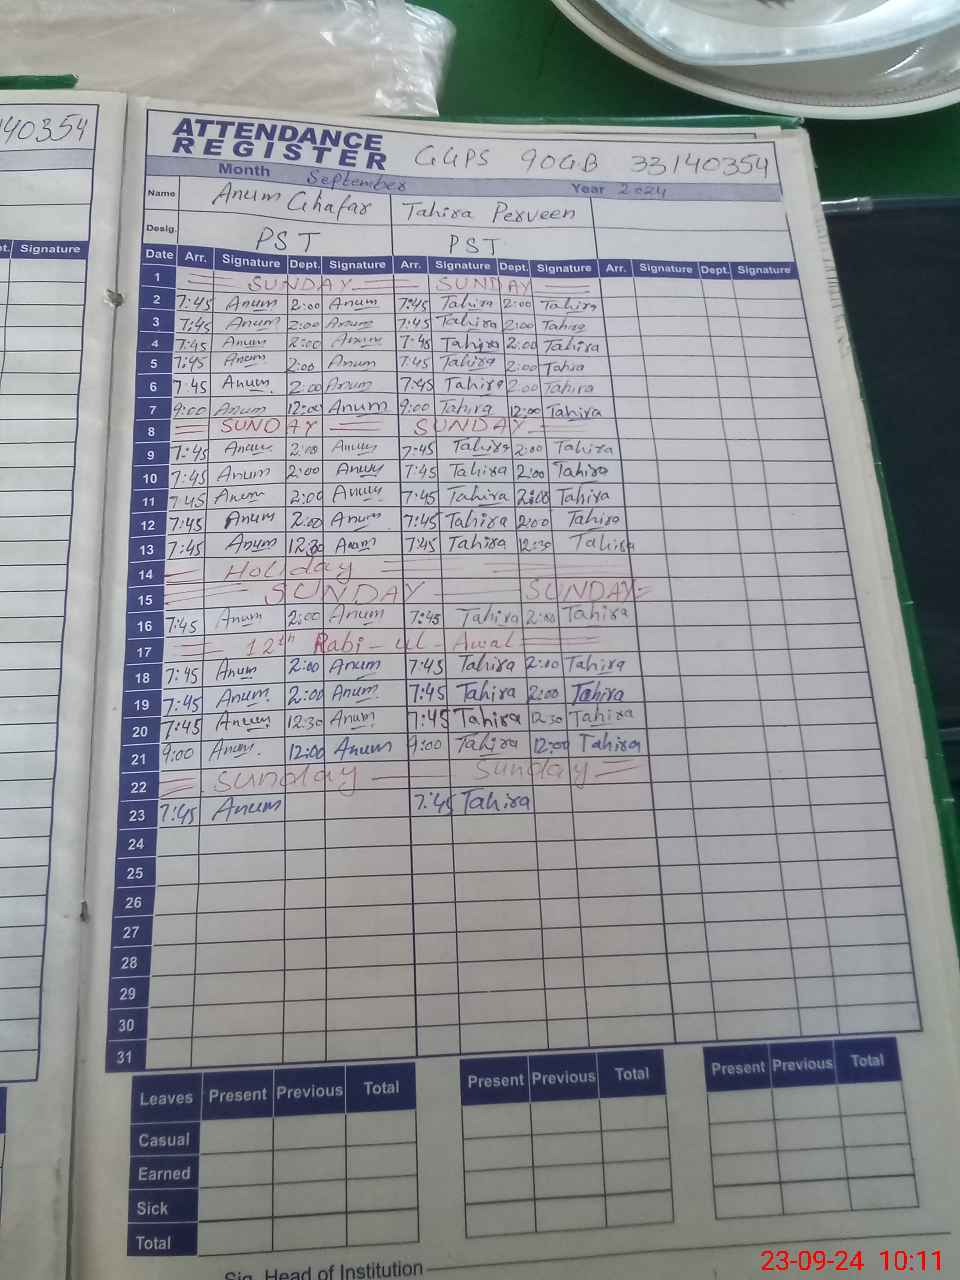 140354
ATTENDANCE
REGISTER GGPS 90G.B 33140354
Month September Year 2024
Name Anum Ghafar Tahira Perveen
Desig. PST PST
t. Signature
Date Arr. Signature Dept. Signature Arr. Signature Dept. Signature Arr. Signature Dept. Signature
1 SUNDAY SUNDAY
2 7:45 Anum 2:00 Anum 7:45 Tahira 2:00 Tahira
3 7:45 Anum 2:00 Anum 7:45 Tahira 2:00 Tahira
4 7:45 Anum 2:00 Anum 7:45 Tahira 2:00 Tahira
5 7:45 Anum 2:00 Anum 7:45 Tahira 2:00 Tahira
6 7:45 Anum 2:00 Anum 7:45 Tahira 2:00 Tahira
7 9:00 Anum 12:00 Anum 9:00 Tahira 12:00 Tahira
8 SUNDAY SUNDAY
9 7:45 Anum 2:00 Anum 7:45 Tahira 2:00 Tahira
10 7:45 Anum 2:00 Anum 7:45 Tahira 2:00 Tahira
11 7:45 Anum 2:00 Anum 7:45 Tahira 2:00 Tahira
12 7:45 Anum 2:00 Anum 7:45 Tahira 2:00 Tahira
13 7:45 Anum 12:30 Anum 7:45 Tahira 12:30 Tahira
14 Holiday
15 SUNDAY SUNDAY
16 7:45 Anum 2:00 Anum 7:45 Tahira 2:00 Tahira
17 12th Rabi-ul-Awal
18 7:45 Anum 2:00 Anum 7:45 Tahira 2:00 Tahira
19 7:45 Anum 2:00 Anum 7:45 Tahira 2:00 Tahira
20 7:45 Anum 12:30 Anum 7:45 Tahira 12:30 Tahira
21 9:00 Anum 12:00 Anum 9:00 Tahira 12:00 Tahira
22 Sunday Sunday
23 7:45 Anum 7:45 Tahira
24
25
26
27
28
29
30
31
Leaves Present Previous Total Present Previous Total Present Previous Total
Casual
Earned
Sick
Total
Sig. Head of Institution
23-09-24 10:11